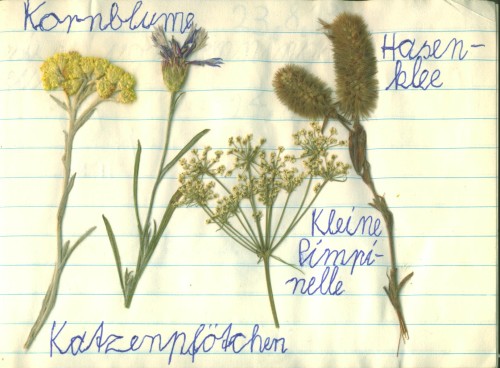 Kornblume
Hasen-
klee
Kleine
Pimpi-
nelle
Katzenpfötchen